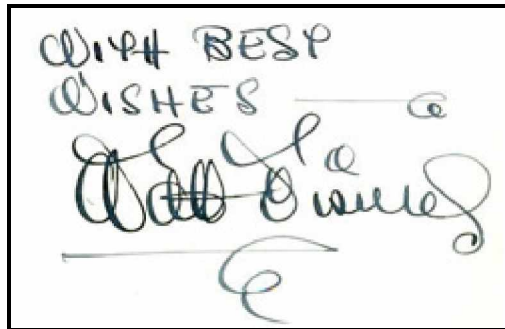 WITH BEST
WISHES —
Walt Disney